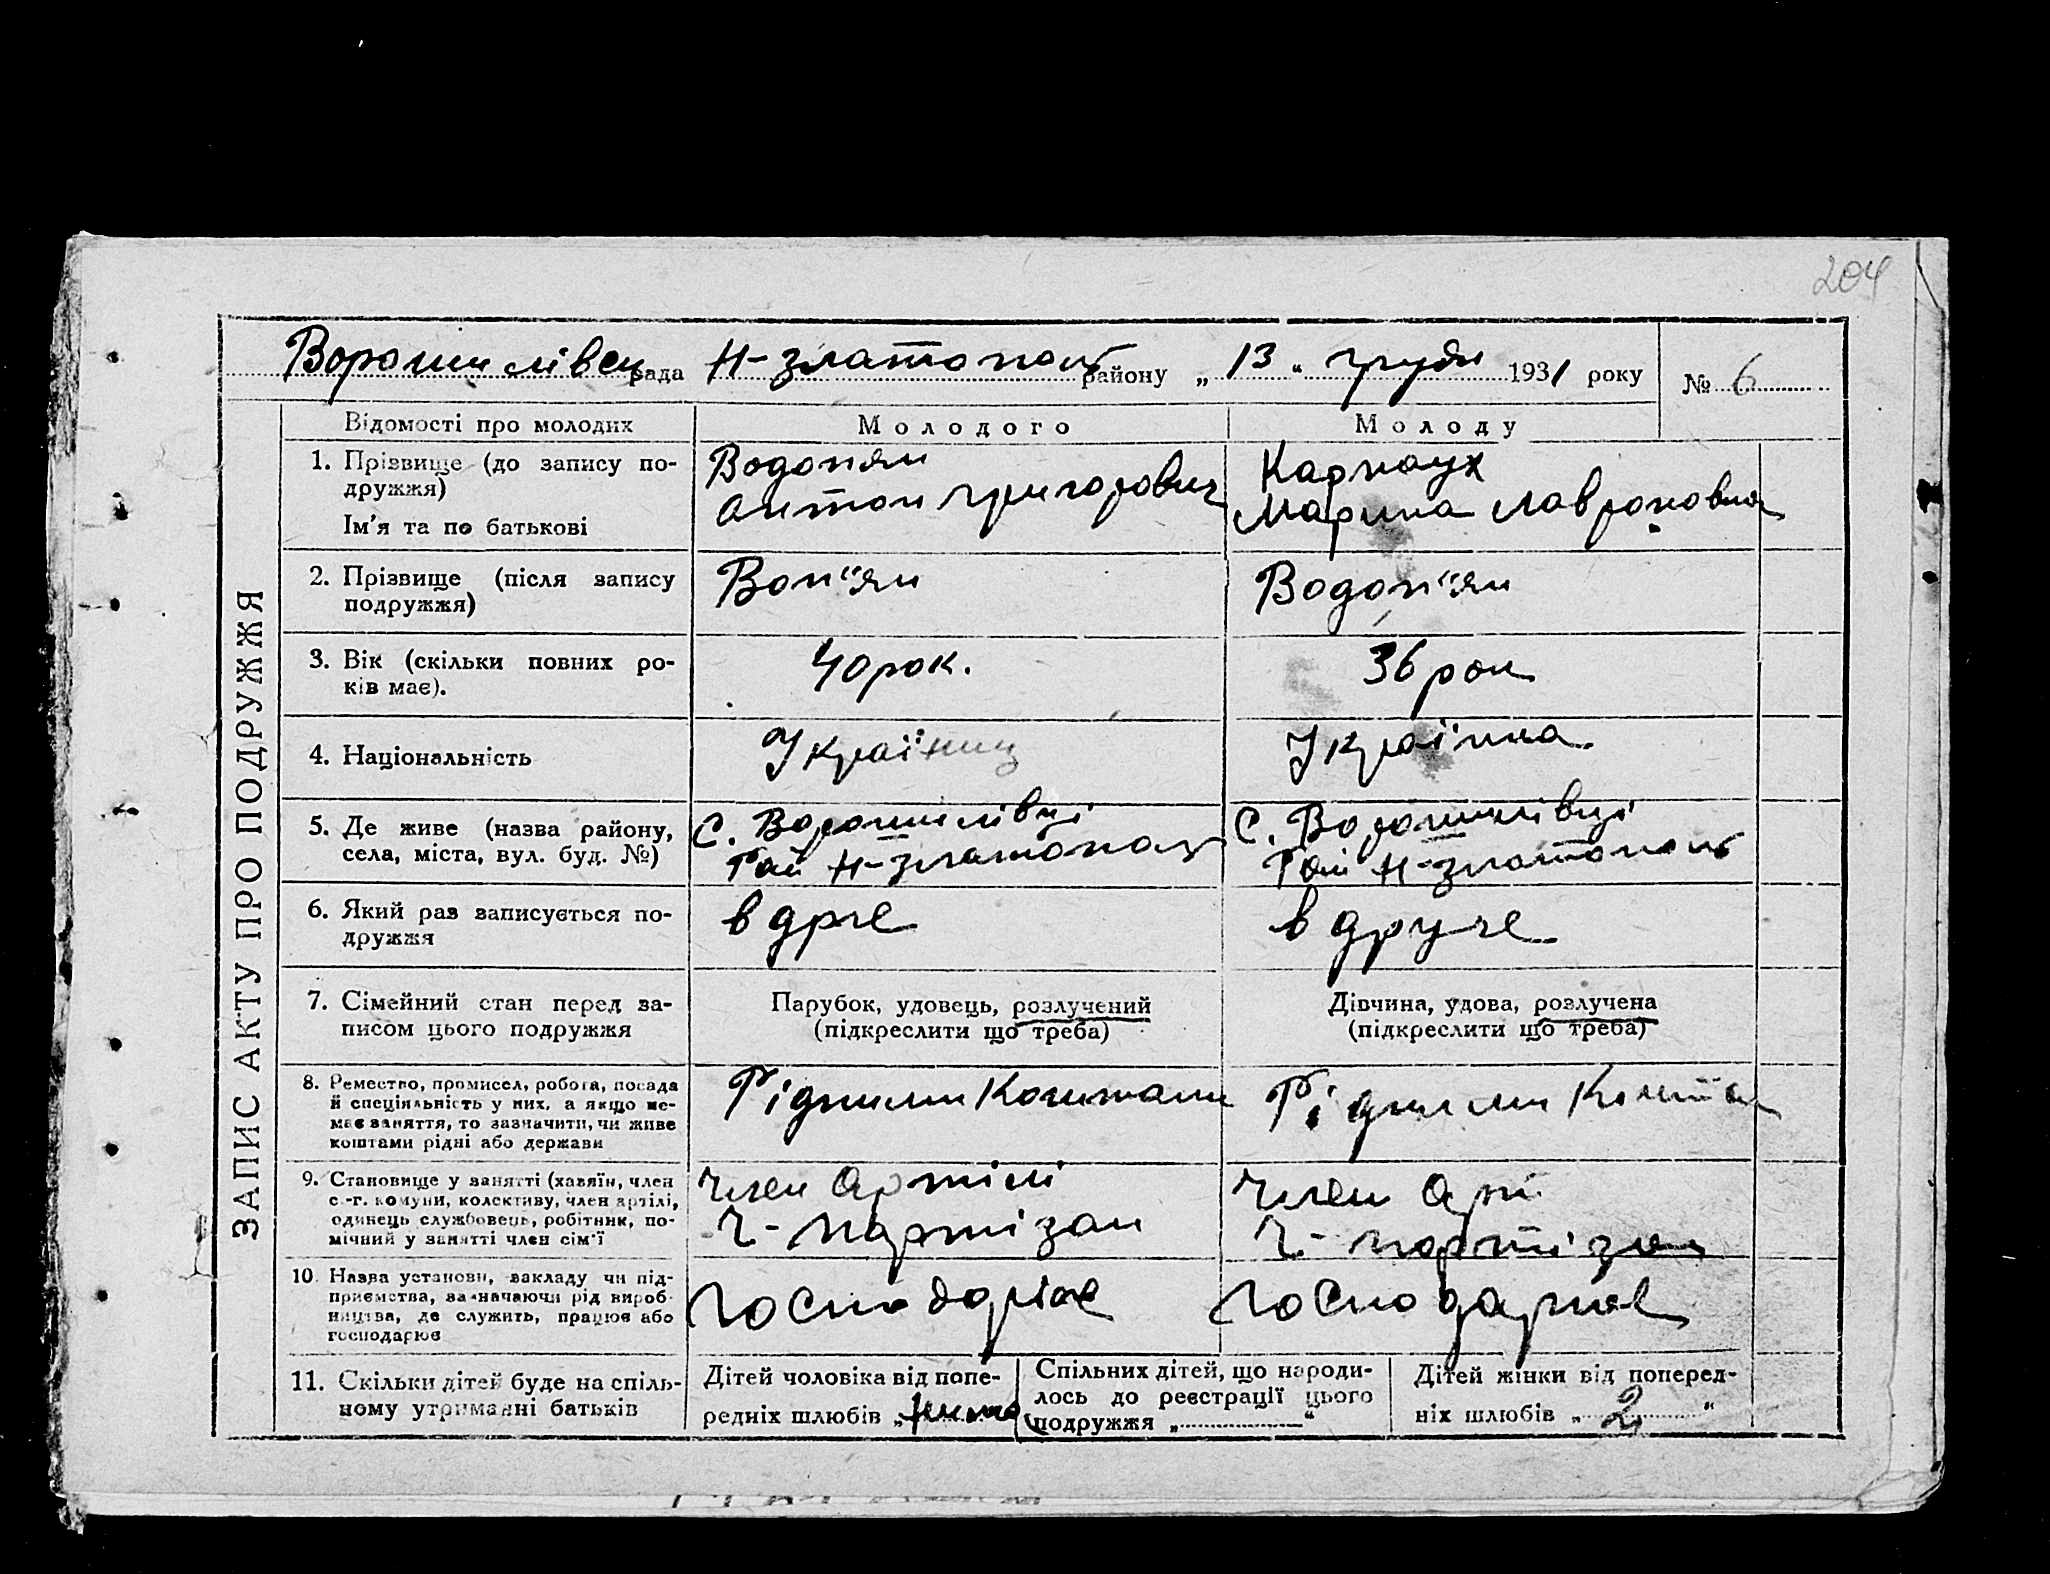 204
Ворошилівськ рада Н-златопол району „13" грудн 1931 року № 6
ЗАПИС АКТУ ПРО ПОДРУЖЖЯ
Відомості про молодих
Молодого
Молоду
1. Прізвище (до запису по-
дружжя)
Ім'я та по батькові
Водопян
Антон Григорович
Карнаух
Марина Лавроновна
2. Прізвище (після запису
подружжя)
Воп"ян
Водоп"ян
3. Вік (скільки повних ро-
ків має).
40 рок.
36 рок
4. Національність
Україниц
Українка.
5. Де живе (назва району,
села, міста, вул. буд. №)
С. Ворошилівці
Рай Н-златопол
С. Ворошилівці
Рай Н-златопол
6. Який раз записується по-
дружжя
в дрге
в друге
7. Сімейний стан перед за-
писом цього подружжя
Парубок, удовець, розлучений
(підкреслити що треба)
Дівчина, удова, розлучена
(підкреслити що треба)
8. Ремество, промисел, робота, посада
й спеціяльність у них, а якщо не-
має заняття, то зазначити, чи живе
коштами рідні або держави
Рідними Коштами
Рідними Кошта
9. Становище у занятті (хазяїн, член
с.-г. комуни, колективу, член артілі,
одинець службовець, робітник, по-
мічний у занятті член сім'ї
член Артілі
Ч-партізан
член Арт
Ч-партізан
10. Назва установи, закладу чи під-
приємства, зазначаючи рід вироб-
ництва, де служить, працює або
господарює
Господоріє
Господарює
11. Скільки дітей буде на спіль-
ному утриманні батьків
Дітей чоловіка від попе-
редніх шлюбів „нима
Спільних дітей, що народи-
лось до реєстрації цього
подружжя „ "
Дітей жінки від поперед-
ніх шлюбів „ 2 "